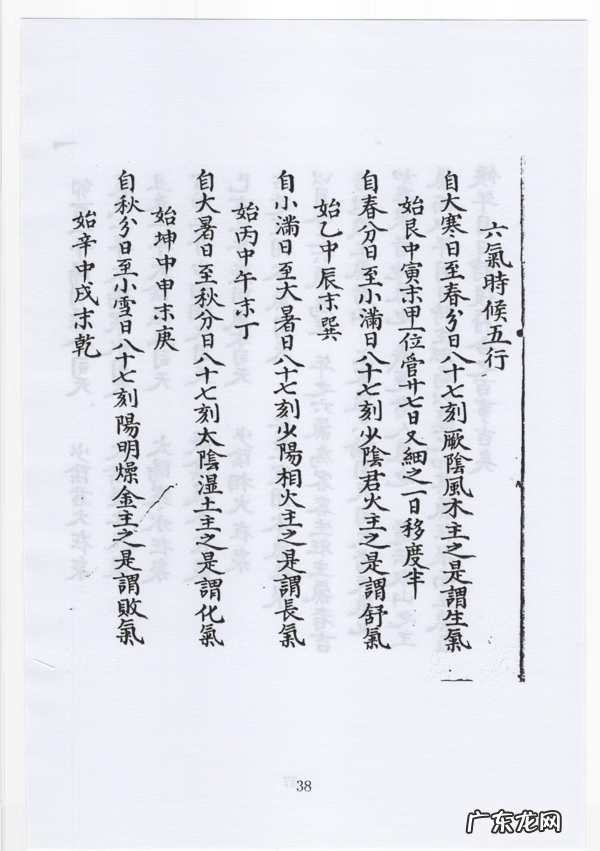 六氣時候五行
自大寒日至春分日八十七刻厥陰風木主之是謂生氣
始艮中寅末甲一位管廿七日又細之一日移度半
自春分日至小滿日八十七刻少陰君火主之是謂舒氣
始乙中辰末巽
自小滿日至大暑日八十七刻少陽相火主之是謂長氣
始丙中午末丁
自大暑日至秋分日八十七刻太陰湿土主之是謂化氣
始坤中申末庚
自秋分日至小雪日八十七刻陽明燥金主之是謂敗氣
始辛中戌末乾
38
广东龙网